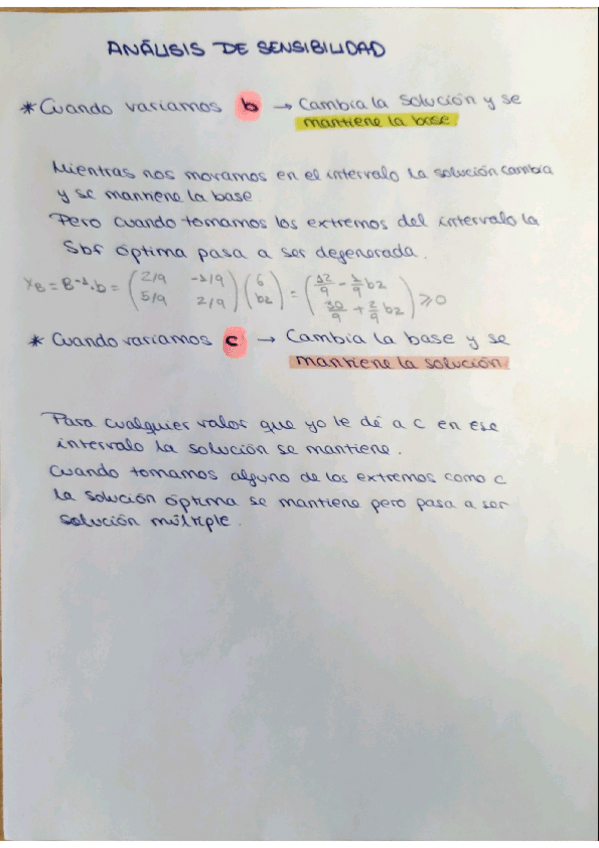 ANÁLISIS DE SENSIBILIDAD
* Cuando variamos b → Cambia la solución y se
mantiene la base.
Mientras nos movamos en el intervalo la solución cambia
y se mantiene la base
Pero cuando tomamos los extremos del intervalo la
Sbf óptima pasa a ser degenerada.
X_B = B⁻¹·b = (2/9 -1/9; 5/9 2/9) (6; b2) = (12/9 - 1/9 b2; 30/9 + 2/9 b2) ⩾ 0
* Cuando variamos c → Cambia la base y se
mantiene la solución.
Para cualquier valor que yo le dé a c en ese
intervalo la solución se mantiene.
Cuando tomamos alguno de los extremos como c
la solución óptima se mantiene pero pasa a ser
solución múltiple.